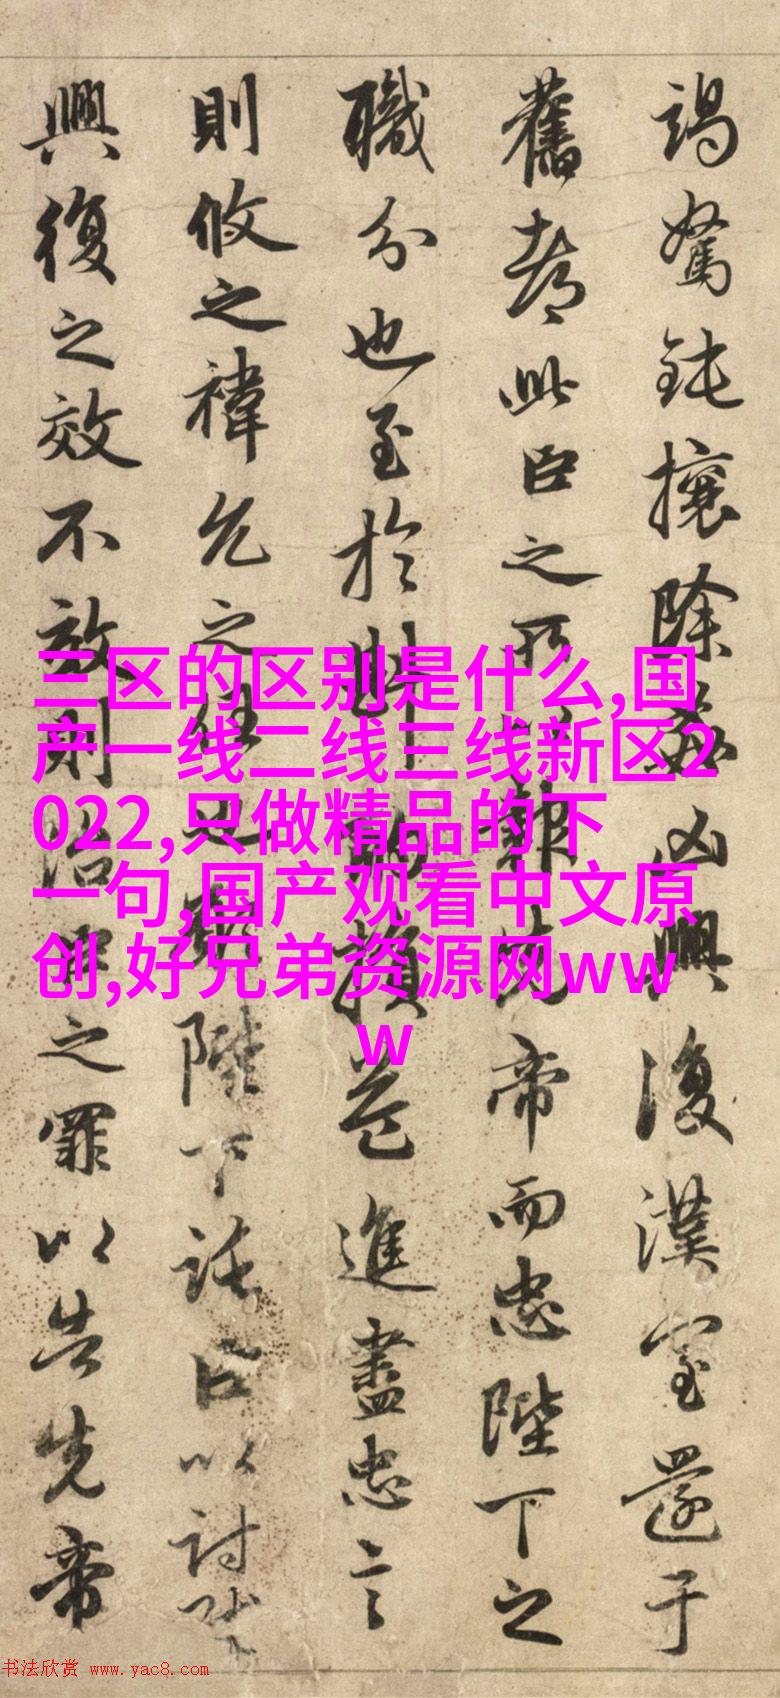 竭駑鈍攘除姦凶興復漢室還于
舊都此臣之所以報先帝而忠陛下之
職分也至於斟酌損益進盡忠言
則攸之禕允之任也願陛下託臣以討賊
興復之效不效則治臣之罪以告先帝
三区的区别是什么,国
产一线二线三线新区2
022,只做精品的下
一句,国产观看中文原
创,好兄弟资源网ww
w
书法欣赏 www.yac8.com